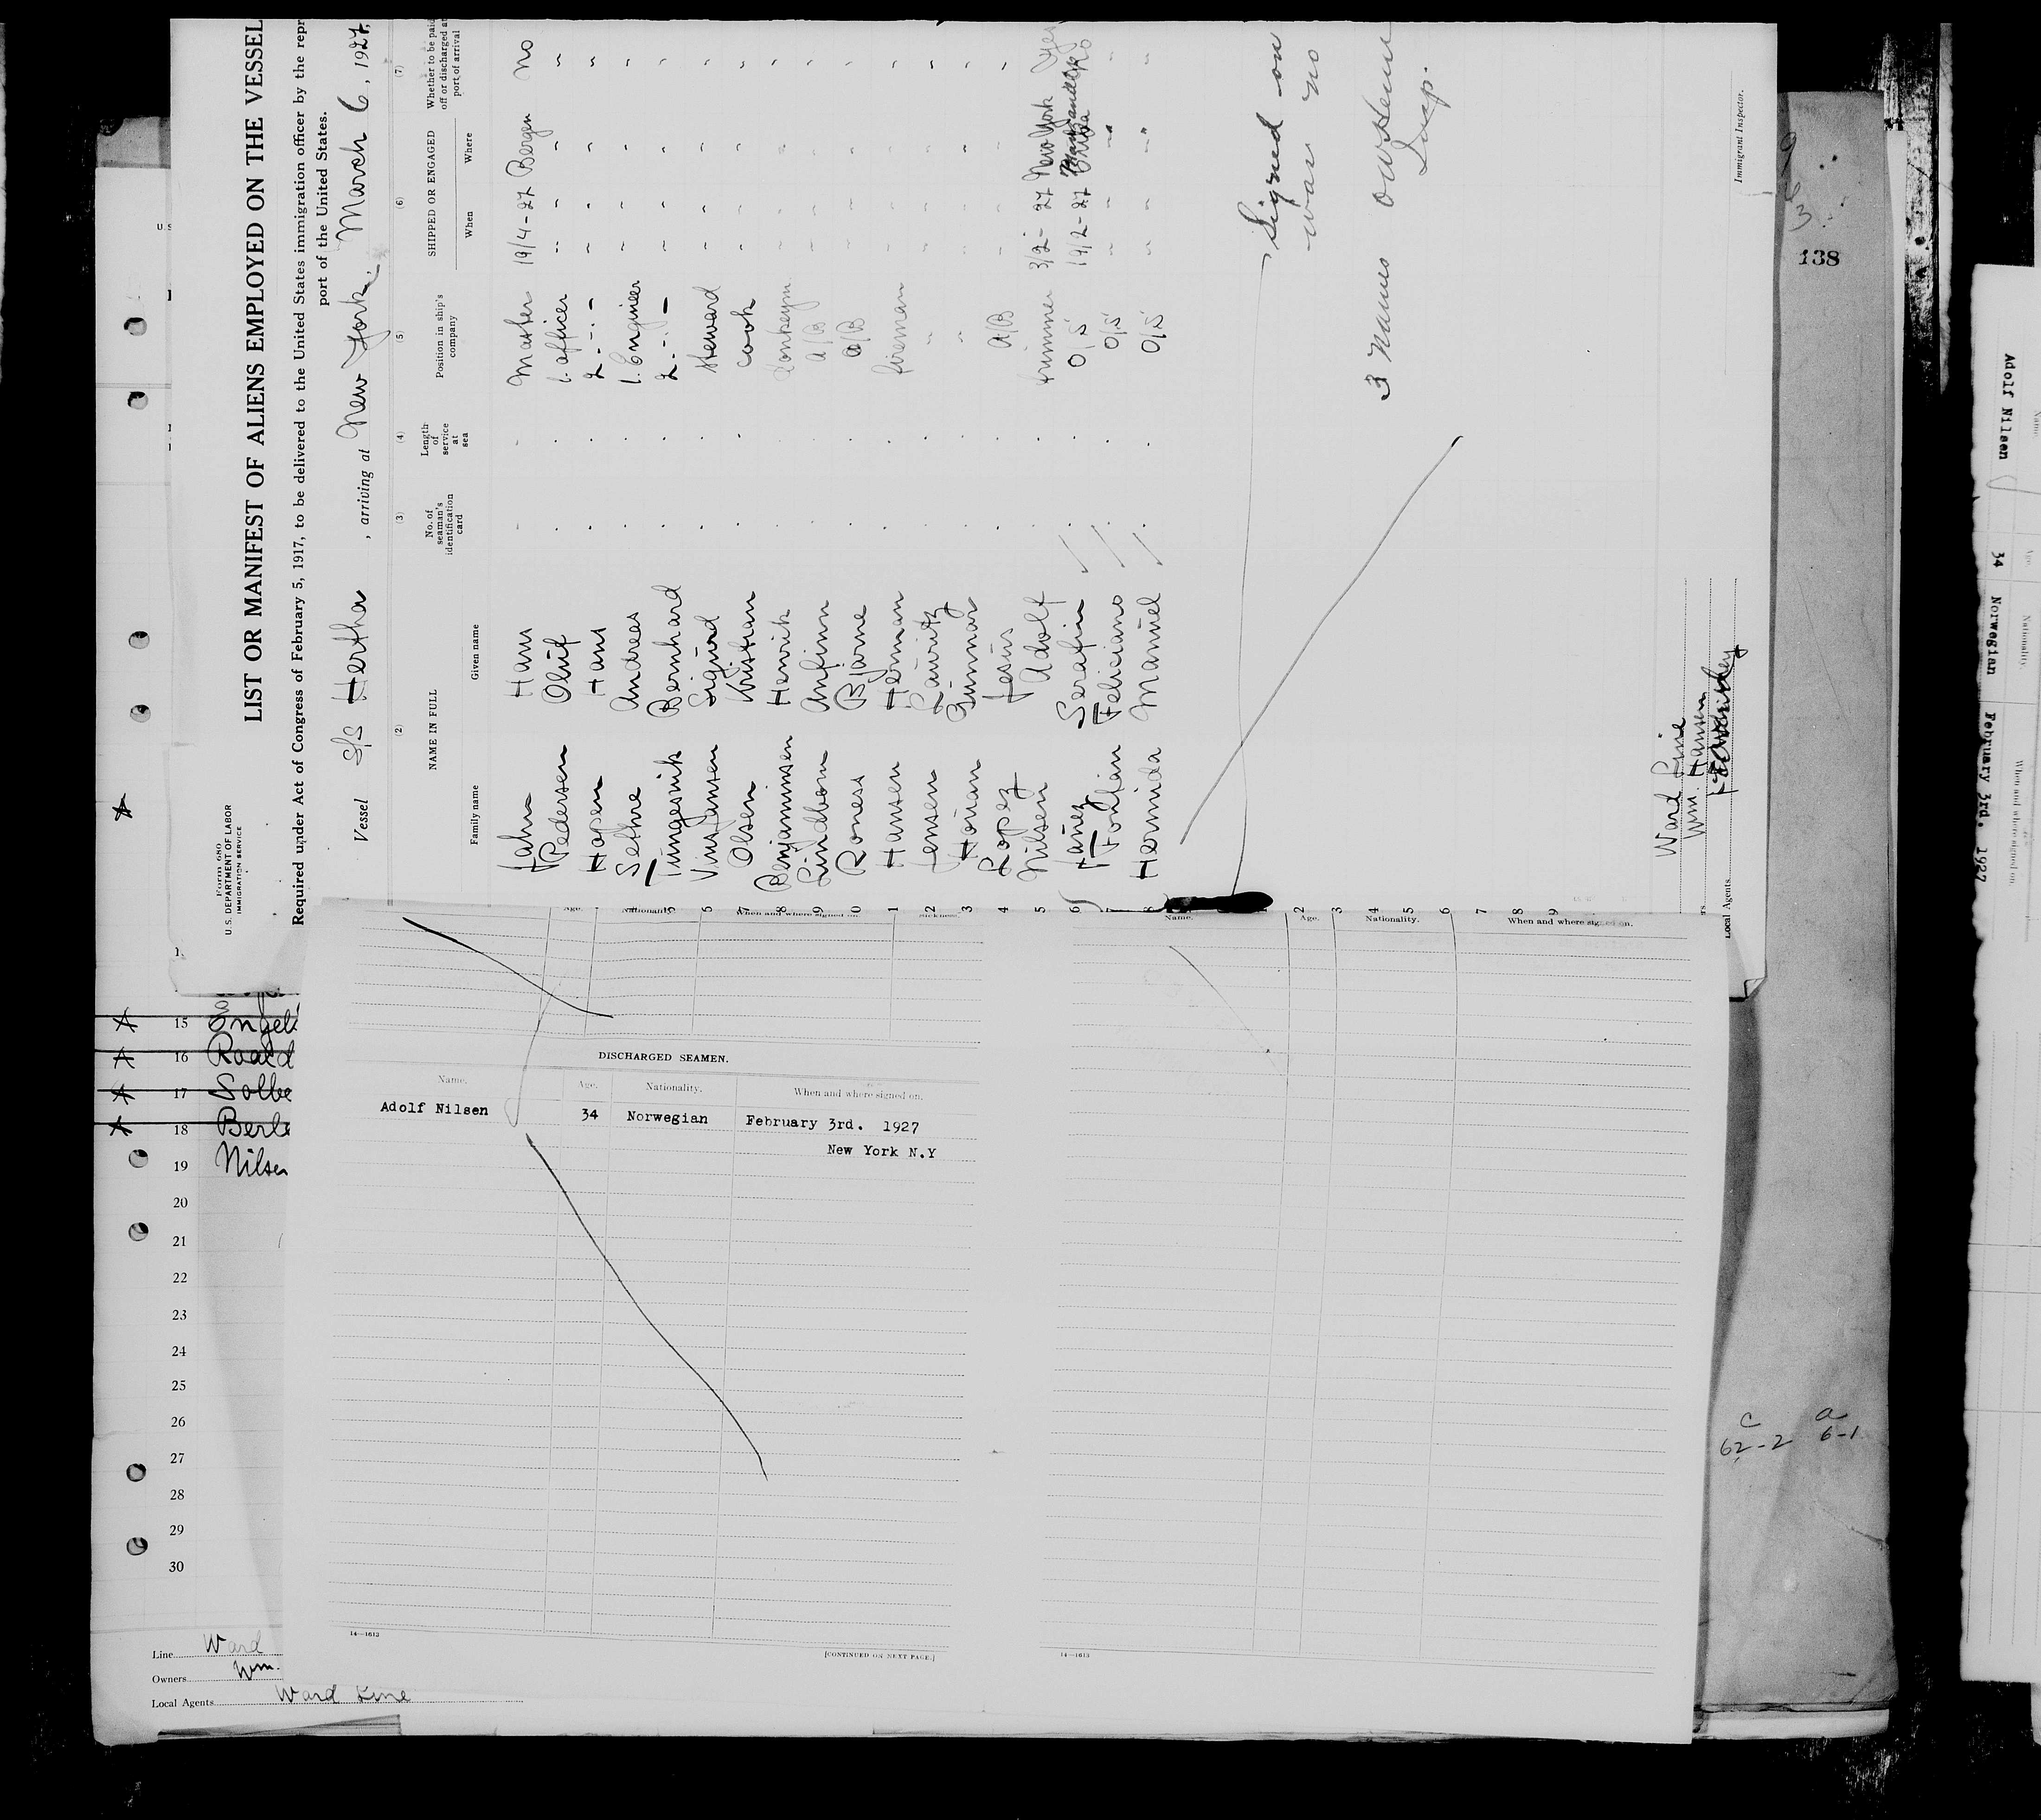 Form 680
U. S. DEPARTMENT OF LABOR
IMMIGRATION SERVICE
LIST OR MANIFEST OF ALIENS EMPLOYED ON THE VESSEL
Required under Act of Congress of February 5, 1917, to be delivered to the United States immigration officer by the repr
port of the United States.
Vessel S/S Hertha , arriving at New York, March 6, 1927,
(2) (3) (4) (5) (6) (7)
NAME IN FULL
Family name Given name
No. of seaman's identification card
Length of service at sea
Position in ship's company
SHIPPED OR ENGAGED
When Where
Whether to be paid off or discharged at port of arrival
Jahn Hans Master 19/4-27 Bergen no
Pedersen Oluf 1. officer " " " "
Hopen Hans 2. -"- " " " "
Sethre Andreas 1. Engineer " " " "
Tungesvik Bernhard 2. -"- " " " "
Vinsjansen Sigurd Steward " " " "
Olsen Kristian Cook " " " "
Benjaminsen Henrik Donkeym " " " "
Lindbom Anfinn A/B " " " "
Roness Bjarne A/B " " " "
Hansen Herman fireman " " " "
Jensen Lauritz " " " " "
Gunnar " " " " "
Lopez Jesus A/B " " " "
Nilsen Adolf trimmer 3/2-27 New York Yes
Yanez Serafin O/S 19/2-27 No
Feliciano O/S " " " "
Hermida Manuel O/S " " " "
Signed on
was no
3 names
Insp.
Immigrant Inspector.
Ward Line
Wm. Hansen
Local Agents
138
Age. Nationality. When and where signed on. Sickness.
Name. Age. Nationality. When and where signed on.
DISCHARGED SEAMEN.
Name. Age. Nationality. When and where signed on.
Adolf Nilsen 34 Norwegian February 3rd. 1927
New York N.Y
14—1613
[CONTINUED ON NEXT PAGE.]
14—1613
15 Engel
16 Roald
17 Solbe
18 Berle
19 Nilsen
20
21
22
23
24
25
26
27
28
29
30
Line Ward
Owners Wm.
Local Agents Ward Line
c
62-2
a
6-1
Name. Age. Nationality. When and where signed on.
Adolf Nilsen 34 Norwegian February 3rd. 1927